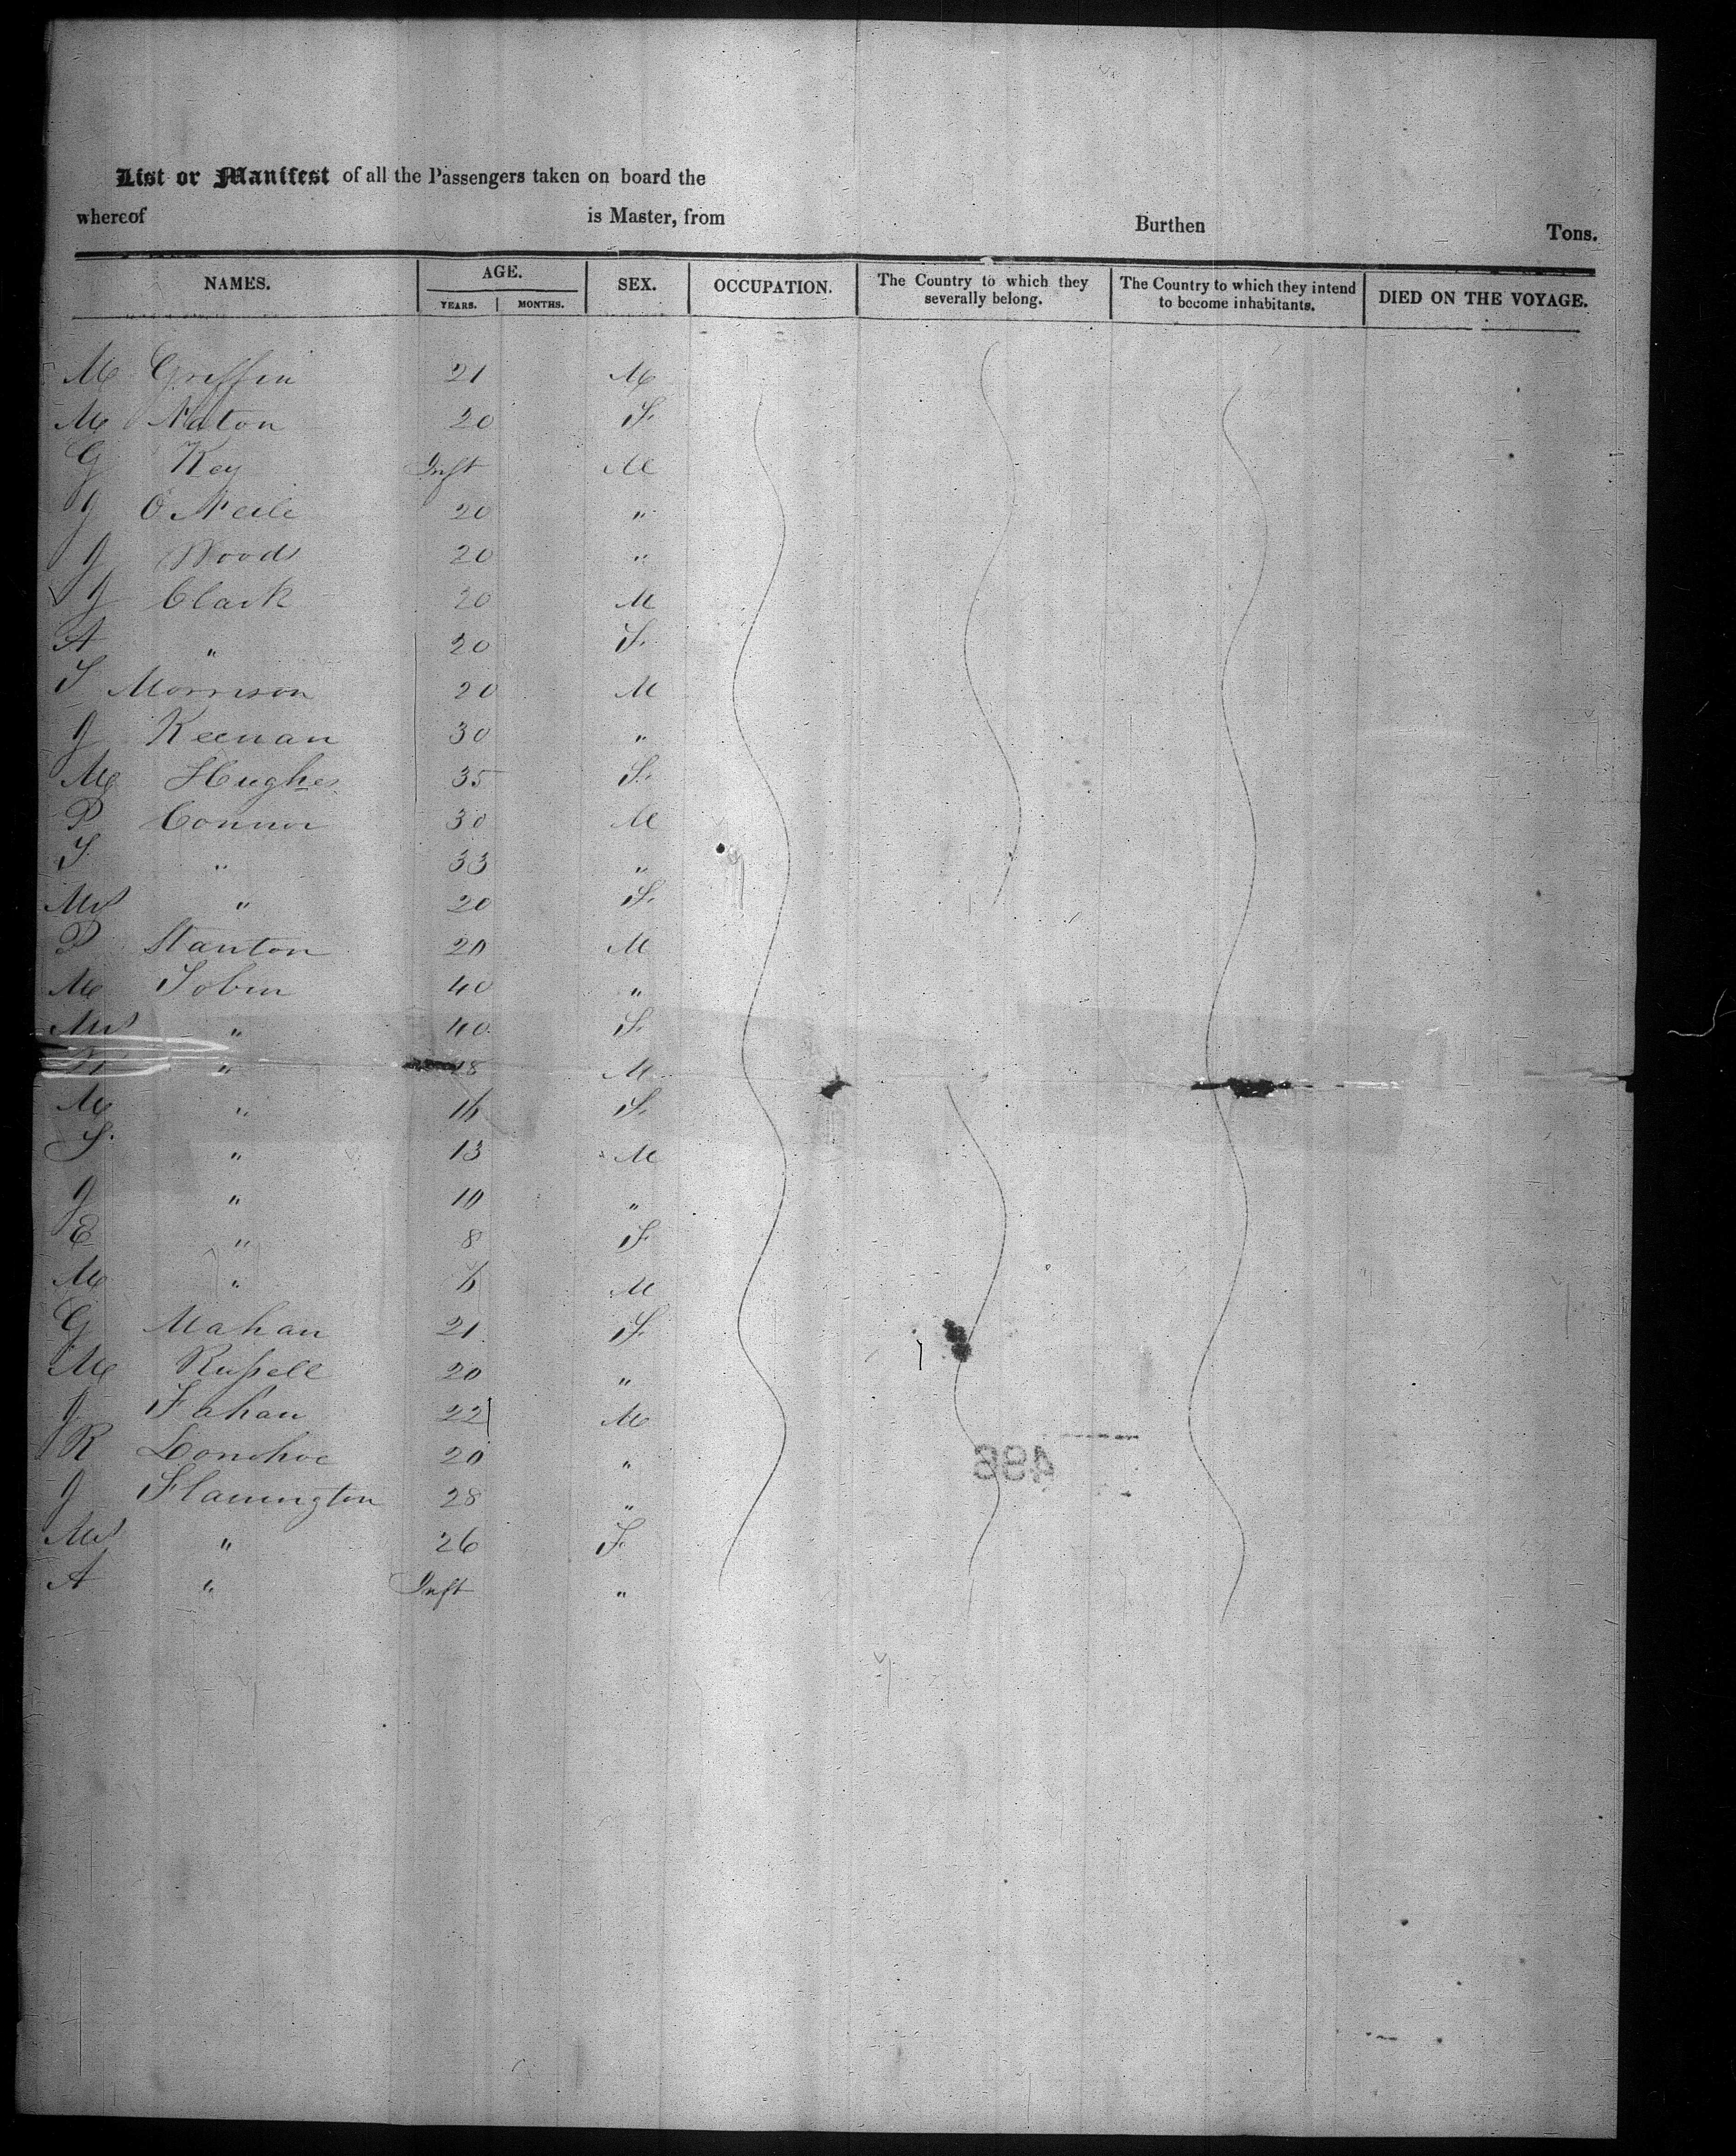 List or Manifest of all the Passengers taken on board the
whereof is Master, from Burthen Tons.
NAMES. AGE. SEX. OCCUPATION. The Country to which they severally belong. The Country to which they intend to become inhabitants. DIED ON THE VOYAGE.
YEARS. MONTHS.
M Griffin 21 M
M Naton 20 F
G Key Inft M
J O'Neile 20 "
J Woods 20 "
J Clark 20 M
A " 20 F
S Morrison 20 M
J Keenan 30 "
M Hughes 35 F
P Connor 30 M
S " 33 "
Mrs " 20 F
P Stanton 20 M
M Tobin 40 "
Mrs " 40 F
" 18 M
M " 16 F
S " 13 M
J " 10 "
E " 8 F
M " 6 M
G Mahan 21 F
M Russell 20 "
J Fahan 22 M
R Donohoe 20 "
J Flannington 28 "
Mrs " 26 F
A " Inft "
498